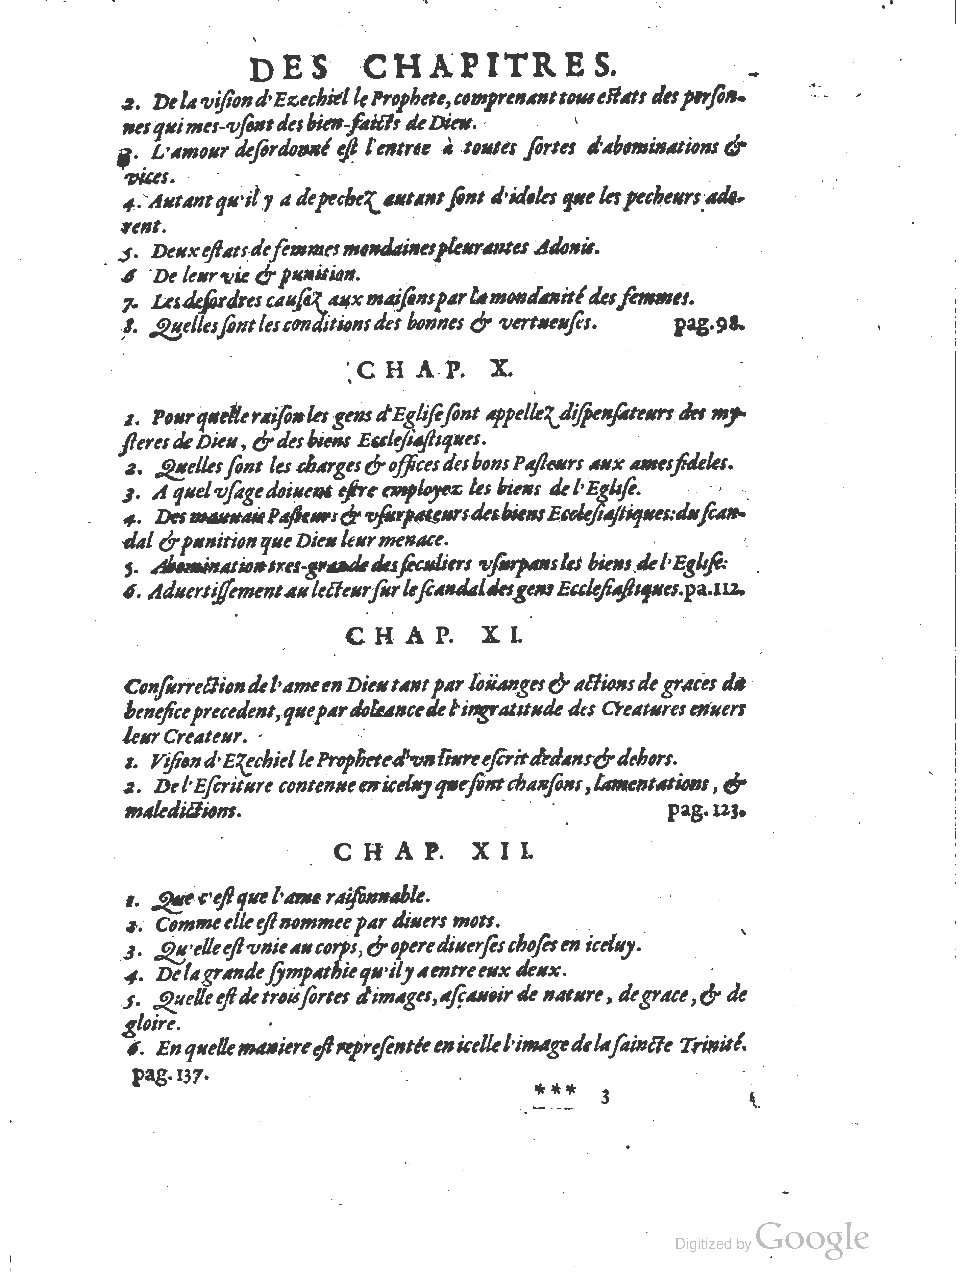 DES CHAPITRES.
2. De la viſion d'Ezechiel le Prophete, comprenant tous eſtats des perſon-
nes qui mes-vſont des bien-faicts de Dieu.
3. L'amour deſordonné eſt l'entree à toutes ſortes d'abominations &
vices.
4. Autant qu'il y a de pechez autant ſont d'idoles que les pecheurs ado-
rent.
5. Deux eſtats de femmes mondaines pleurantes Adonis.
6 De leur vie & punition.
7. Les deſordres cauſez aux maiſons par la mondanité des femmes.
8. Quelles ſont les conditions des bonnes & vertueuſes. pag. 98.
CHAP. X.
1. Pour quelle raiſon les gens d'Egliſe ſont appellez diſpenſateurs des my-
ſteres de Dieu, & des biens Eccleſiaſtiques.
2. Quelles ſont les charges & offices des bons Paſteurs aux ames fideles.
3. A quel vſage doiuent eſtre employez les biens de l'Egliſe.
4. Des mauuais Paſteurs & vſurpateurs des biens Eccleſiaſtiques: du ſcan-
dal & punition que Dieu leur menace.
5. Abomination tres-grande des ſeculiers vſurpans les biens de l'Egliſe.
6. Aduertiſſement au lecteur ſur le ſcandal des gens Eccleſiaſtiques. pa. 112.
CHAP. XI.
Conſurrection de l'ame en Dieu tant par loüanges & actions de graces du
benefice precedent, que par doleance de l'ingratitude des Creatures enuers
leur Createur.
1. Viſion d'Ezechiel le Prophete d'vn liure eſcrit dedans & dehors.
2. De l'Eſcriture contenue en iceluy que ſont chanſons, lamentations, &
maledictions. pag. 123.
CHAP. XII.
1. Que c'eſt que l'ame raiſonnable.
2. Comme elle eſt nommee par diuers mots.
3. Qu'elle eſt vnie au corps, & opere diuerſes choſes en iceluy.
4. De la grande ſympathie qu'il y a entre eux deux.
5. Quelle eſt de trois ſortes d'images, aſçauoir de nature, de grace, & de
gloire.
6. En quelle maniere eſt repreſentée en icelle l'image de la ſaincte Trinité.
pag. 137.
*** 3
Digitized by Google